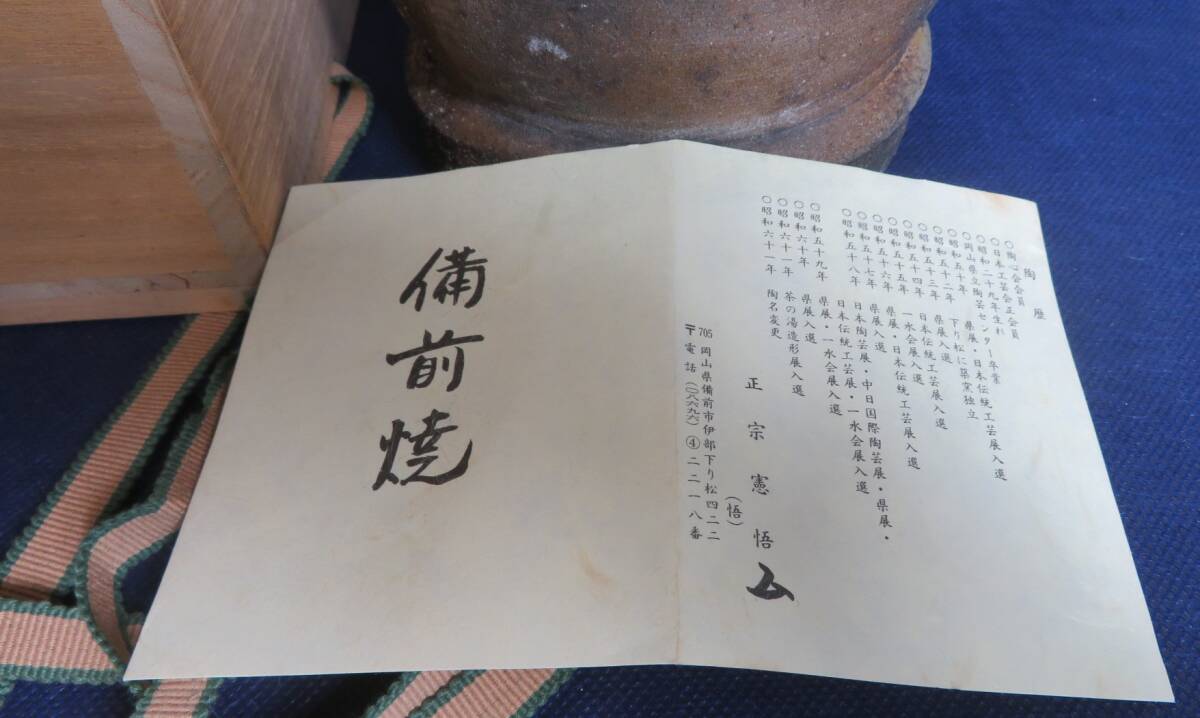 陶歴
○陶心会会員
○日本工芸会正会員
○昭和二十九年生れ
○岡山県立陶芸センター卒業
○昭和五十年 県展・日本伝統工芸展入選
○昭和五十二年 下り松に築窯独立
県展入選
○昭和五十三年 日本伝統工芸展入選
○昭和五十四年 一水会展入選
○昭和五十五年 県展・日本伝統工芸展入選
○昭和五十六年 県展入選
○昭和五十七年 日本陶芸展・中日国際陶芸展・県展・
日本伝統工芸展・一水会展入選
○昭和五十八年 県展・一水会展入選
○昭和五十九年 県展入選
○昭和六十年 茶の湯造形展入選
○昭和六十一年 陶名変更
正宗憲悟
(悟)
〒705 岡山県備前市伊部下り松四二二
電話(〇八六九六)④二二一八番
備前焼